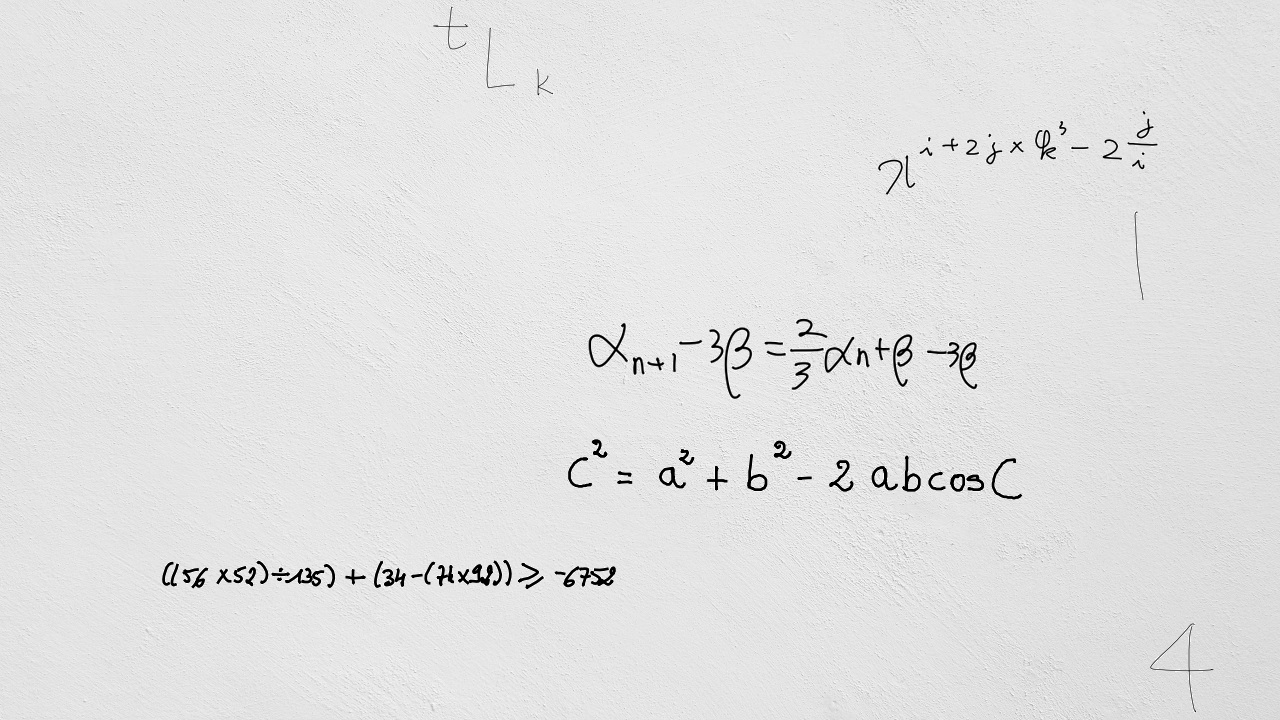 t L_k
π^{i + 2j × φ_k^3 - 2\frac{j}{i}}
|
α_{n+1} - 3β = \frac{2}{3} α_n + β - 3β
c^2 = a^2 + b^2 - 2 ab cos C
((156 × 52) ÷ 135) + (34 - (71 × 98)) ≥ -6752
4